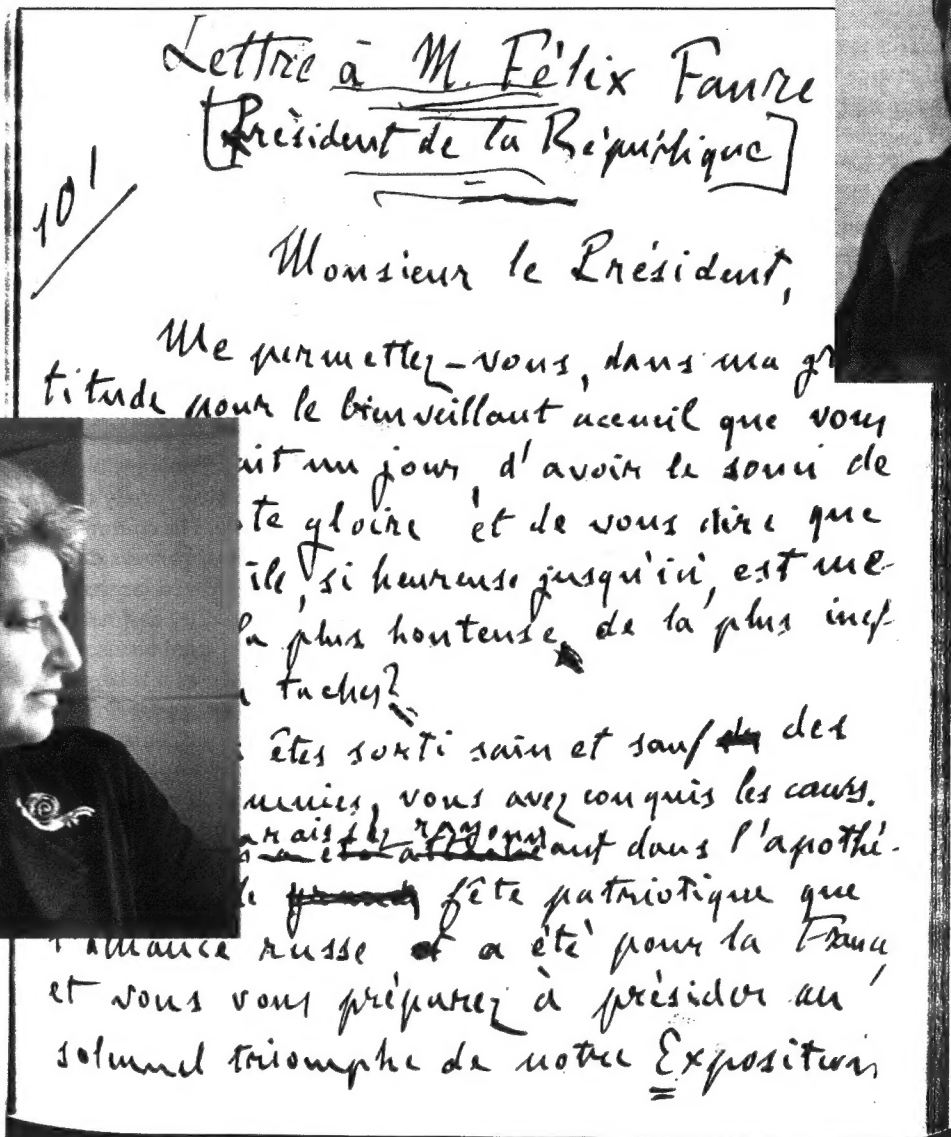 Lettre à M. Félix Faure
[Président de la République]
101
Monsieur le Président,
Me permettez-vous, dans ma gr
titude pour le bienveillant accueil que vous
ait un jour, d'avoir le souci de
te gloire et de vous dire que
ile, si heureuse jusqu'ici, est me-
la plus honteuse, de la plus inef-
taches?
êtes sorti sain et sauf des
mnies, vous avez conquis les cœurs.
araissez rayonnant dans l'apothé-
fête patriotique que
l'alliance russe a été pour la France,
et vous vous préparez à présider au
solennel triomphe de notre Exposition